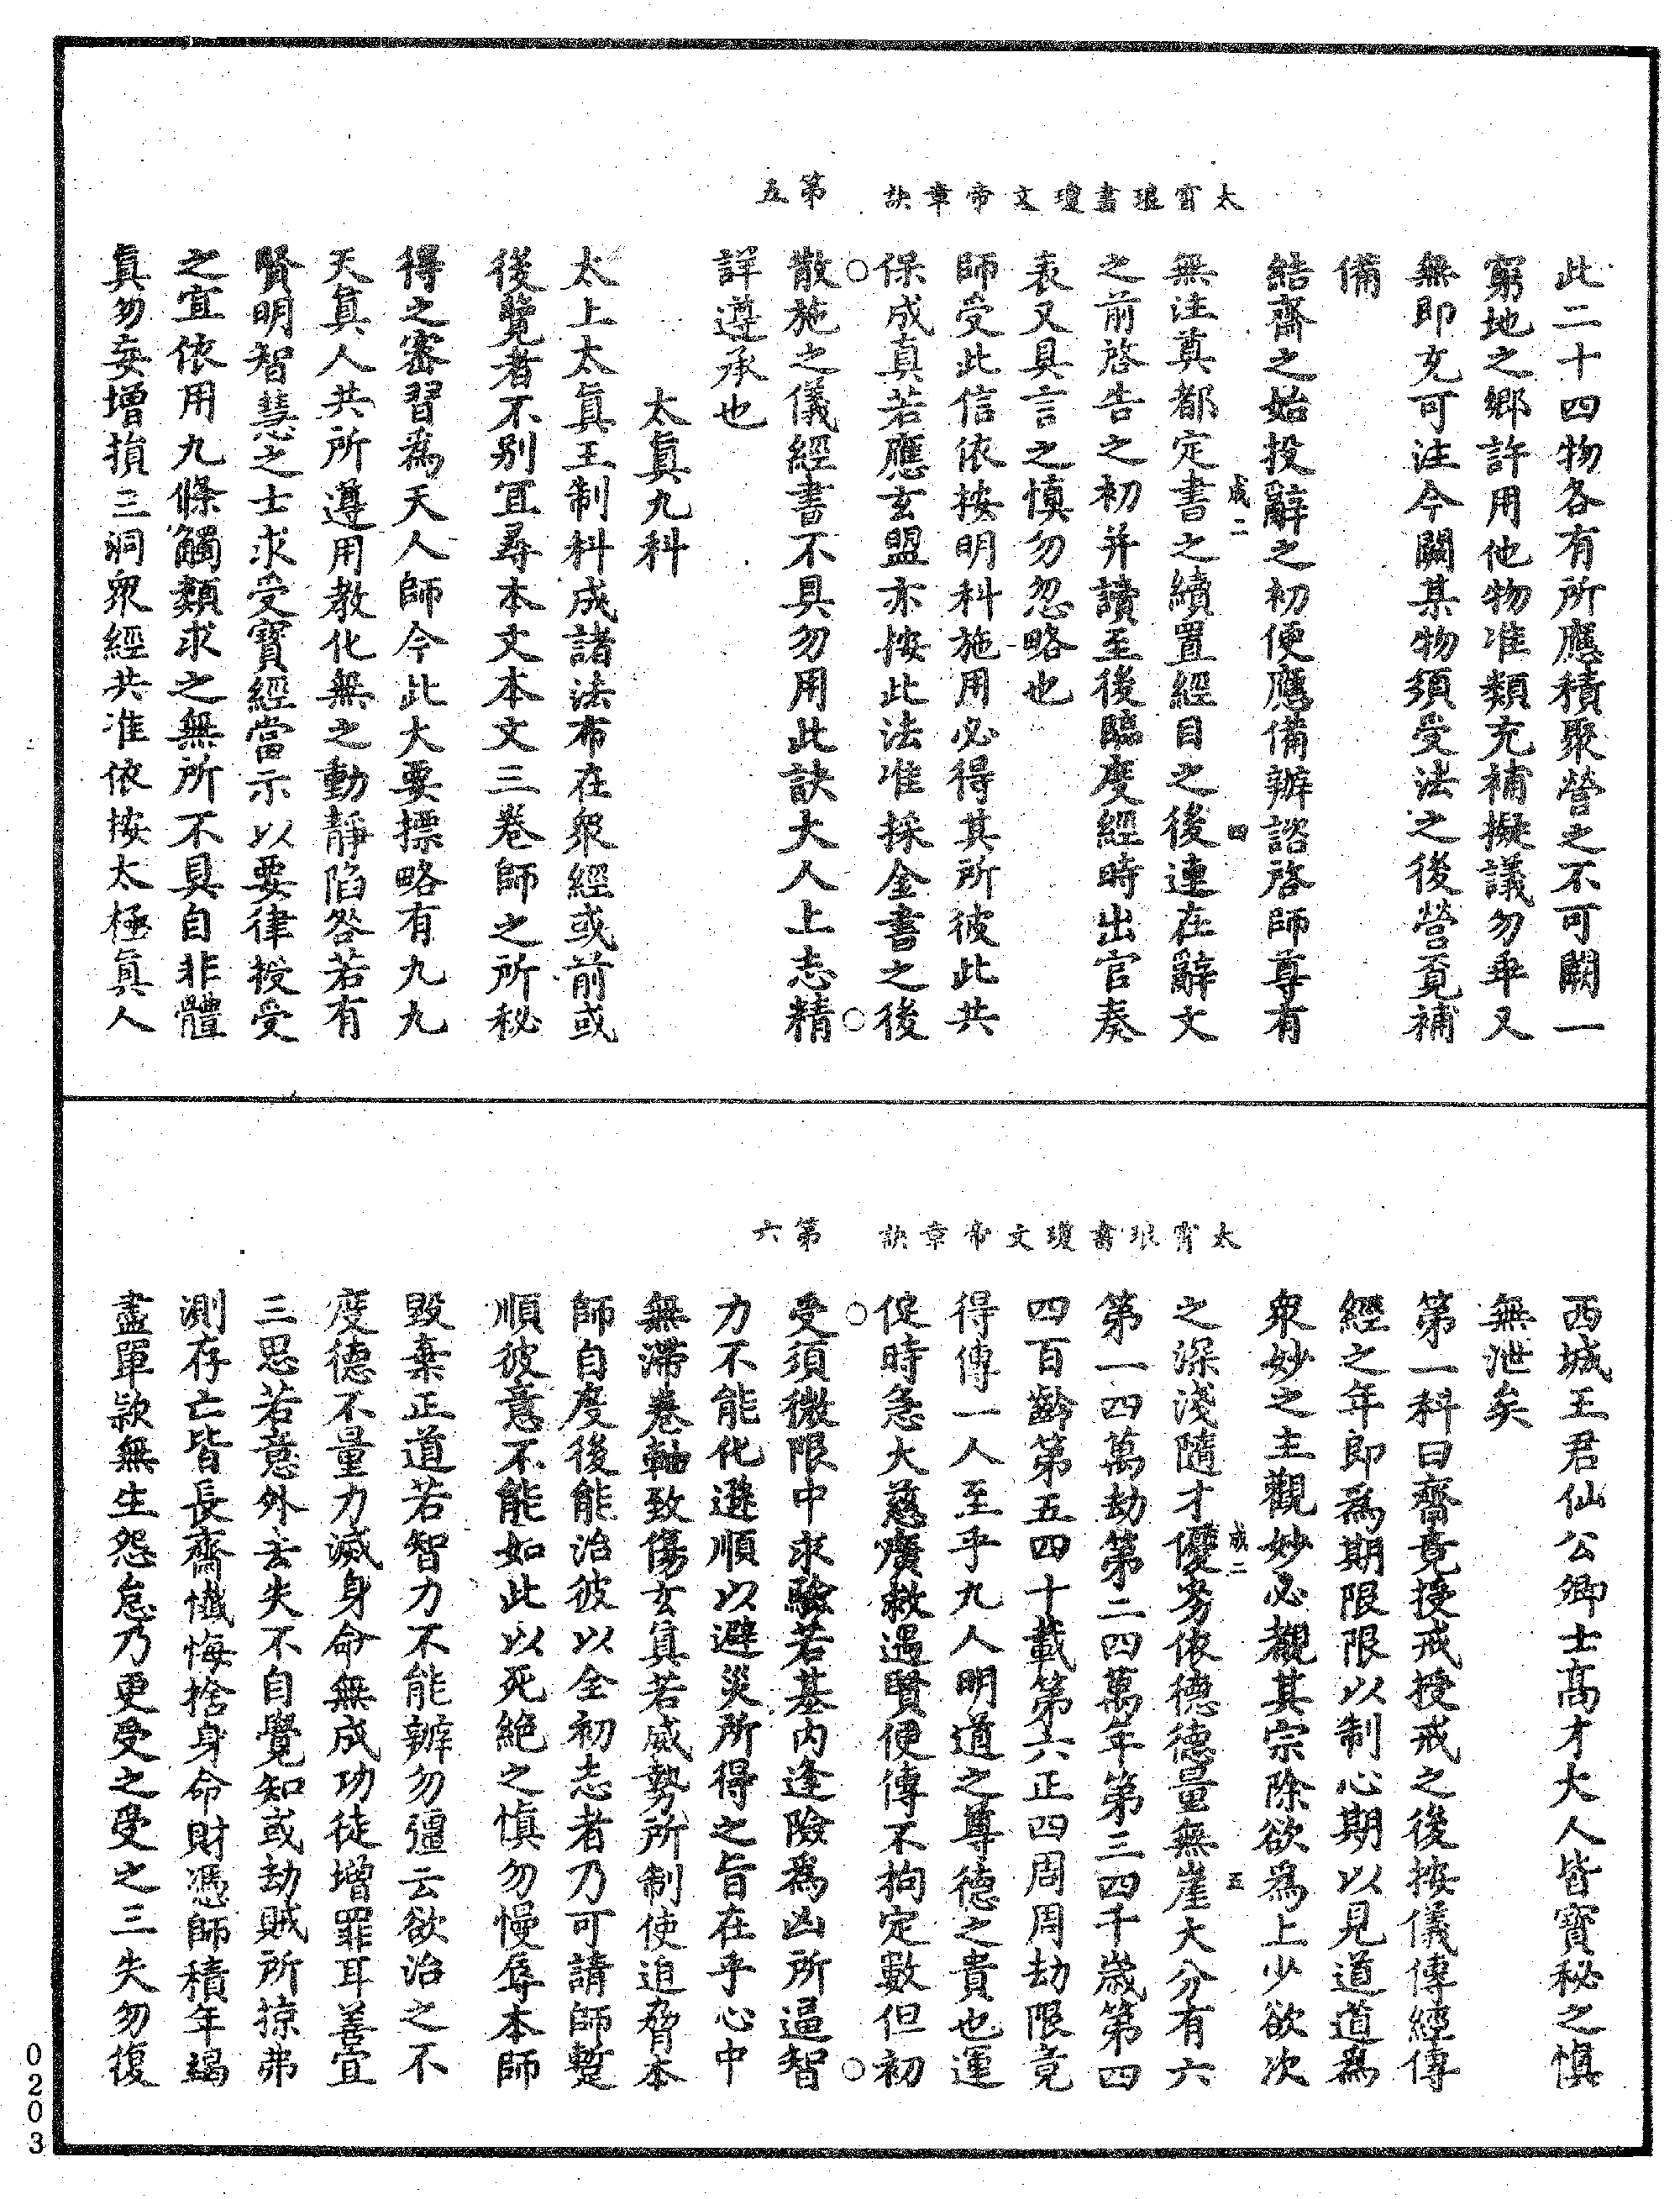 太霄琅書瓊文帝章訣　第五
此二十四物各有所應積聚營之不可闕一
窮地之鄉許用他物准類充補擬議勿乖又
無即充可注今闕某物須受法之後營覓補
備
結齋之始投辭之初便應備辦諮啓師尊有
成二　四
無注奠都定書之續置經目之後連在辭文
之前啓告之初并讀至後臨度經時出官奏
表又具言之慎勿忽略也
師受此信依按明科施用必得其所彼此共
保成真若應玄盟亦按此法准採金書之後
散施之儀經書不具勿用此訣大人上志精
詳遵承也
太眞九科
太上太眞王制科成諸法布在衆經或前或
後覽者不别宜尋本文本文三卷師之所秘
得之審習爲天人師今此大要摽略有九九
天眞人共所遵用教化無之動靜陷咎若有
賢明智慧之士求受寳經當示以要律授受
之宜依用九條觸類求之無所不具自非體
眞勿妄增損三洞衆經共准依按太極眞人
太霄琅書瓊文帝章訣　第六
西城王君仙公卿士髙才大人皆寳秘之慎
無泄矣
第一科曰齋竟授戒授戒之後按儀傳經傳
經之年即爲期限限以制心期以見道道爲
衆妙之主觀妙必覩其宗除欲爲上少欲次
之深淺隨才優劣依德德量無崖大分有六
成二　五
第一四萬劫第二四萬年第三四千歲第四
四百齡第五四十載第六正四周周劫限竟
得傳一人至乎九人明道之尊德之貴也運
促時急大慈廣救遇賢便傳不拘定數但初
受須微限中求驗若基内逢險爲凶所逼智
力不能化遜順以避災所得之旨在乎心中
無滯卷軸致傷玄真若威勢所制使迫脅本
師自度後能治彼以全初志者乃可請師蹔
順彼意不能如此以死絶之慎勿慢辱本師
毀棄正道若智力不能辦勿彊云欲治之不
度德不量力滅身命無成功徒增罪耳善宜
三思若意外去失不自覺知或劫賊所掠弗
測存亡皆長齋懺悔捨身命財馮師積年竭
盡單款無生怨怠乃更受之受之三失勿復
0203